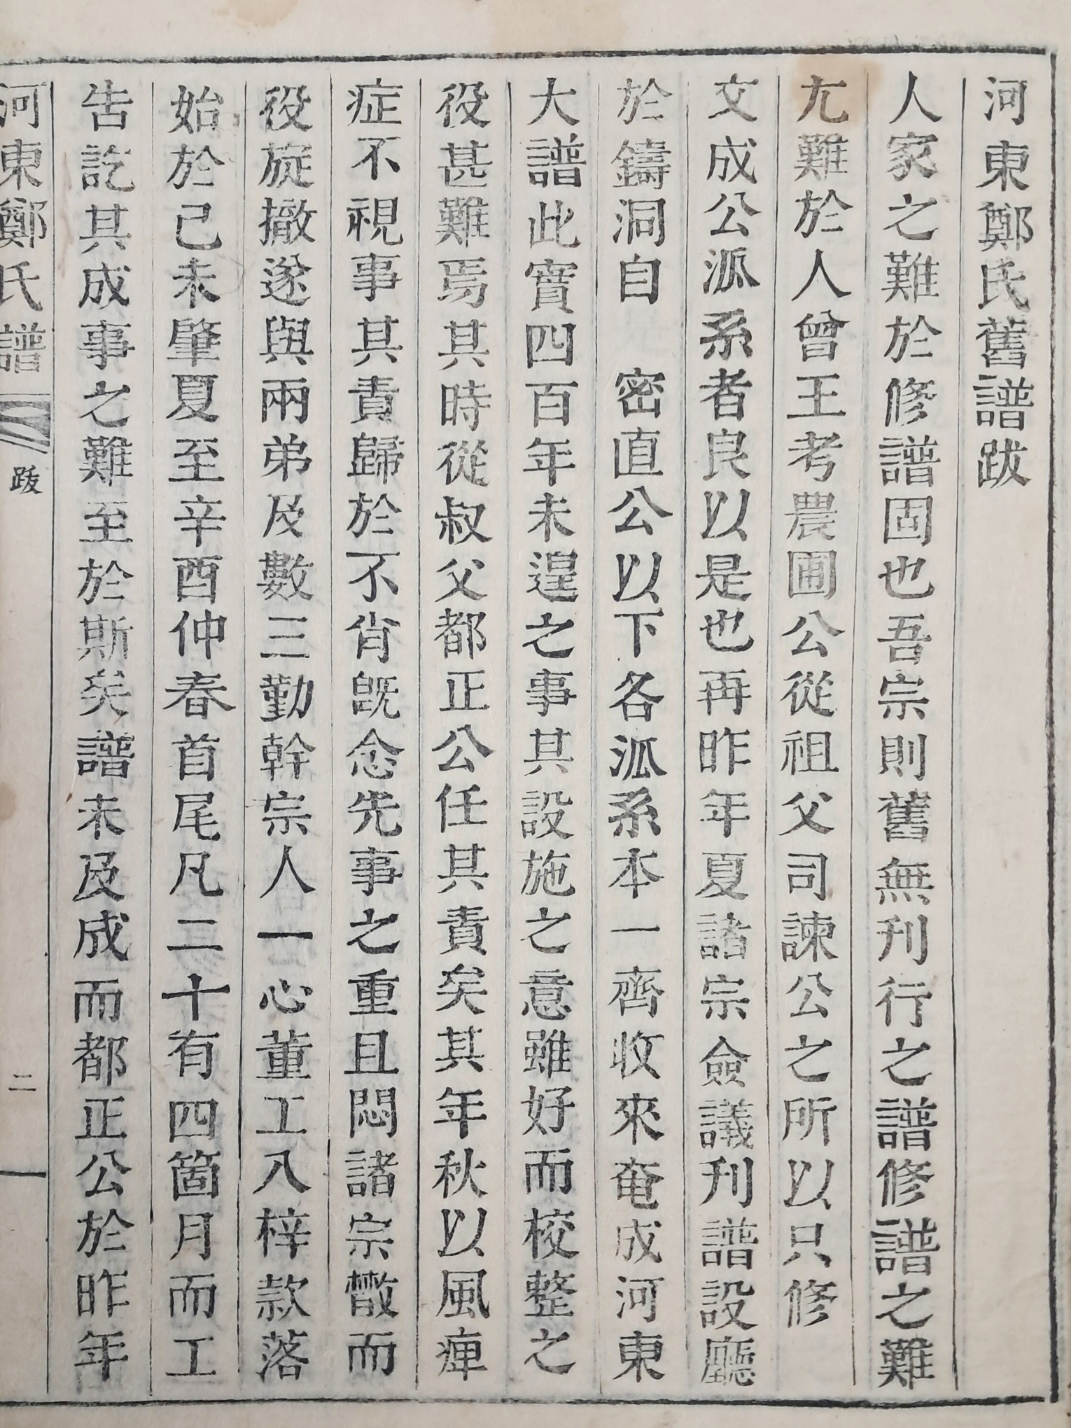 河東鄭氏舊譜跋
人家之難於修譜固也吾宗則舊無刊行之譜修譜之難
尢難於人曾王考農圃公從祖父司諫公之所以只修
文成公派系者良以是也再昨年夏諸宗僉議刊譜設廳
於鑄洞自 密直公以下各派系本一齊收來奄成河東
大譜此實四百年未遑之事其設施之意雖好而校整之
役甚難焉其時從叔父都正公任其責矣其年秋以風痺
症不視事其責歸於不肖旣念先事之重且悶諸宗慠而
役旋撤遂與兩弟及數三勤幹宗人一心董工入梓款落
始於己未肇夏至辛酉仲春首尾凡二十有四箇月而工
告訖其成事之難至於斯矣譜未及成而都正公於昨年
河東鄭氏譜 跋 二